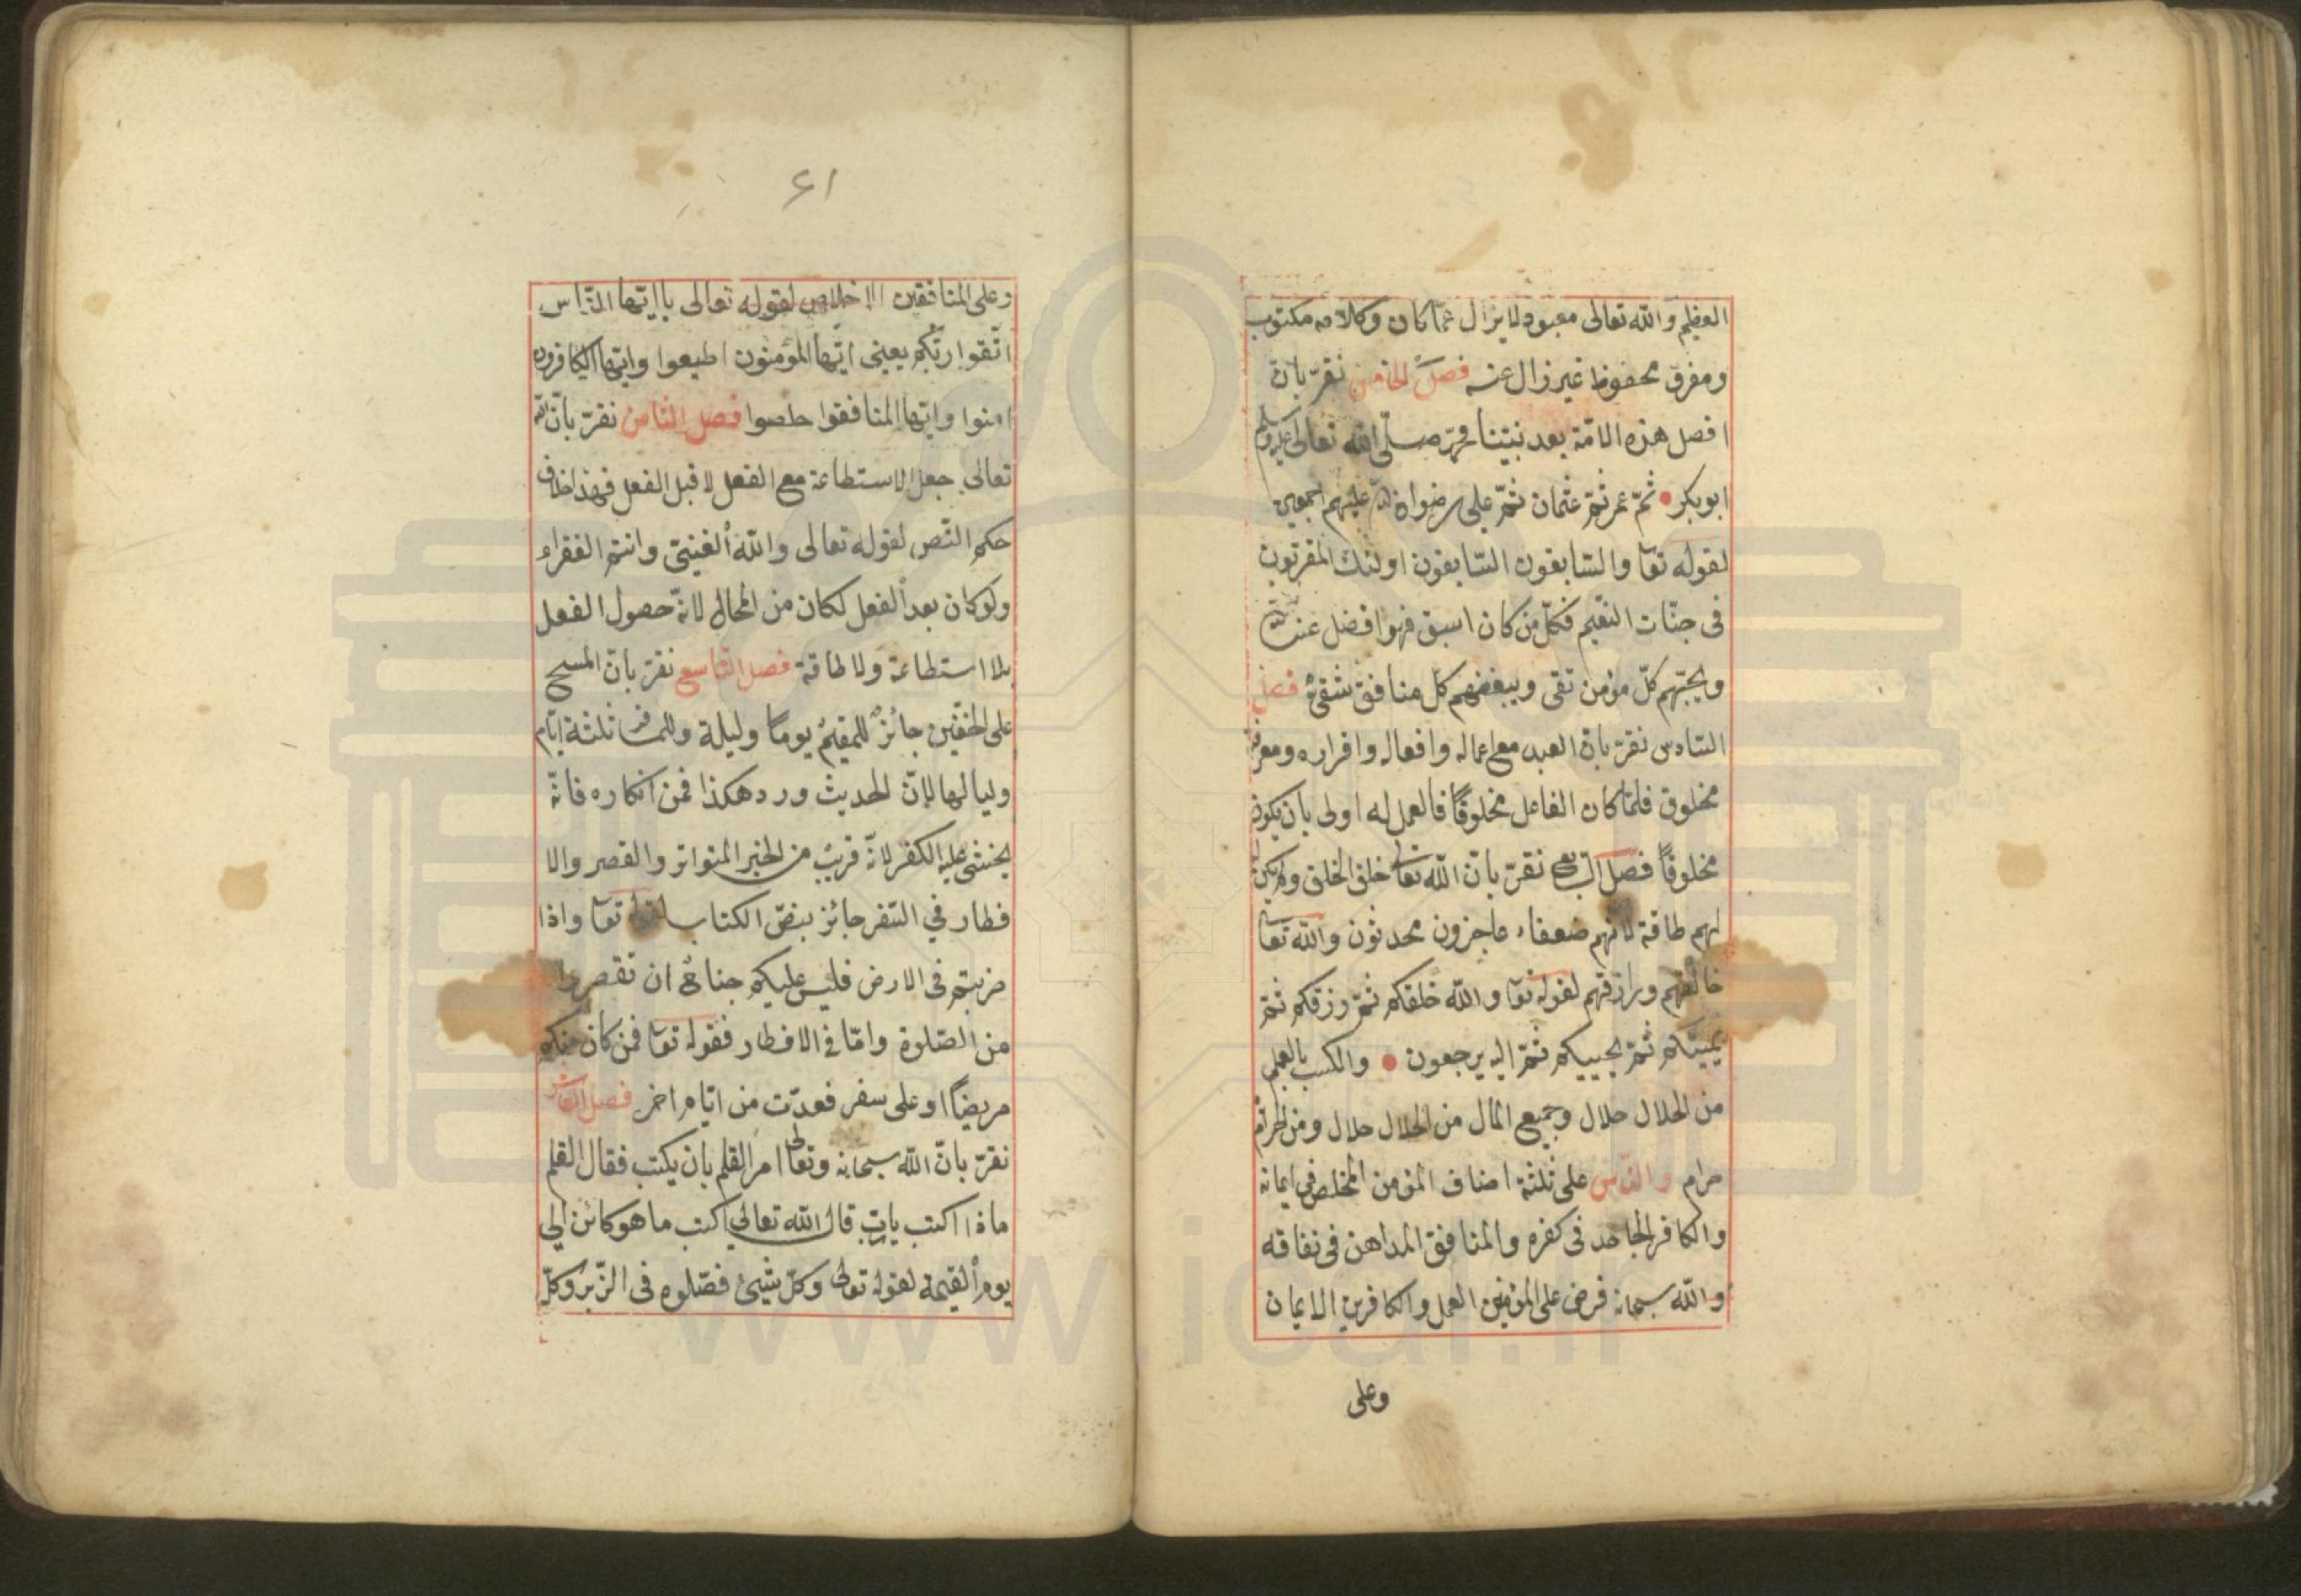 العظيم والله تعالى معبود لا يزال عمّا كان وكلامه مكتوب
ومفرق محفوظ غير زال عنه فصل الخامس نقرّ بانّ
افصل هذه الامّة بعد نبيّنا محمّد صلّى الله تعالى عليه وسلم
ابوبكر ثمّ عمر ثمّ عثمان ثمّ على رضوان الله عليهم اجمعين
لقوله تعا والسّابقون السّابقون اولئك المقربون
فى جنّات النّعيم فكلّ من كان اسبق فهو افضل عند الله
ويحبّهم كلّ مؤمن تقى ويبغضهم كلّ منافق شقىّ فصل
السّادس نقرّ بانّ العبد مع اعماله وافعاله واقراره ومعرفته
مخلوق فلمّا كان الفاعل مخلوقًا فالعمل له اولى بان يكون
مخلوقًا فصل السّابع نقرّ بانّ الله تعالى خلق الخلق ولم يكن
لهم طاقة لانهم ضعفاء عاجزون محدثون والله تعا
خالقهم ورازقهم لقوله تعا والله خلقكم ثمّ رزقكم ثمّ
يميتكم ثمّ يحييكم ثمّ اليه يرجعون والكسب بالعلم
من الحلال حلال وجميع المال من الحلال حلال ومن الحرام
حرام والنّاس على ثلثة اصناف المؤمن المخلص فى ايمانه
والكافر الجاحد فى كفره والمنافق المداهن فى نفاقه
والله سبحانه فرض على المؤمنين العمل والكافرين الايمان
وعلى
٦١
وعلى المنافقين الاخلاص لقوله تعالى يا ايّها النّاس
اتّقوا ربّكم يعينى ايّها المؤمنون اطيعوا وايّها الكافرون
امنوا وايّها المنافقوا خلصوا فصل الثامن نقرّ بانّ الله
تعالى جعل الاستطاعة مع الفعل لا قبل الفعل فهذا خلاف
حكم النّص لقوله تعالى والله الغنىّ وانتم الفقراء
ولو كان بعد الفعل لكان من المحال لانّه حصول الفعل
بلا استطاعة ولا طاقة فصل التّاسع نقرّ بانّ المسح
على الخفّين جائز للمقيم يومًا وليلة وللمسافر ثلثة ايّام
ولياليها لانّ الحديث ورد هكذا فمن انكاره فانّه
يخشى عليه الكفر لانّه قريب من الخبر المتواتر والقصر والا
فطار في السّفر جائز بنصّ الكتاب لقوله تعا واذا
ضربتم فى الارض فليس عليكم جناح ان تقصروا
من الصّلوة وامّا فى الافطار فقوله تعا فمن كان منكم
مريضًا او على سفر فعدّت من ايّام اخر فصل العاشر
نقرّ بانّ الله سبحانه وتعالى امر القلم بان يكتب فقال القلم
ماذا اكتب ياربّ قال الله تعالى اكتب ما هو كائن الى
يوم القيمة لقوله تعالى وكلّ شيئ فصّلوه فى الزّبر وكلّ